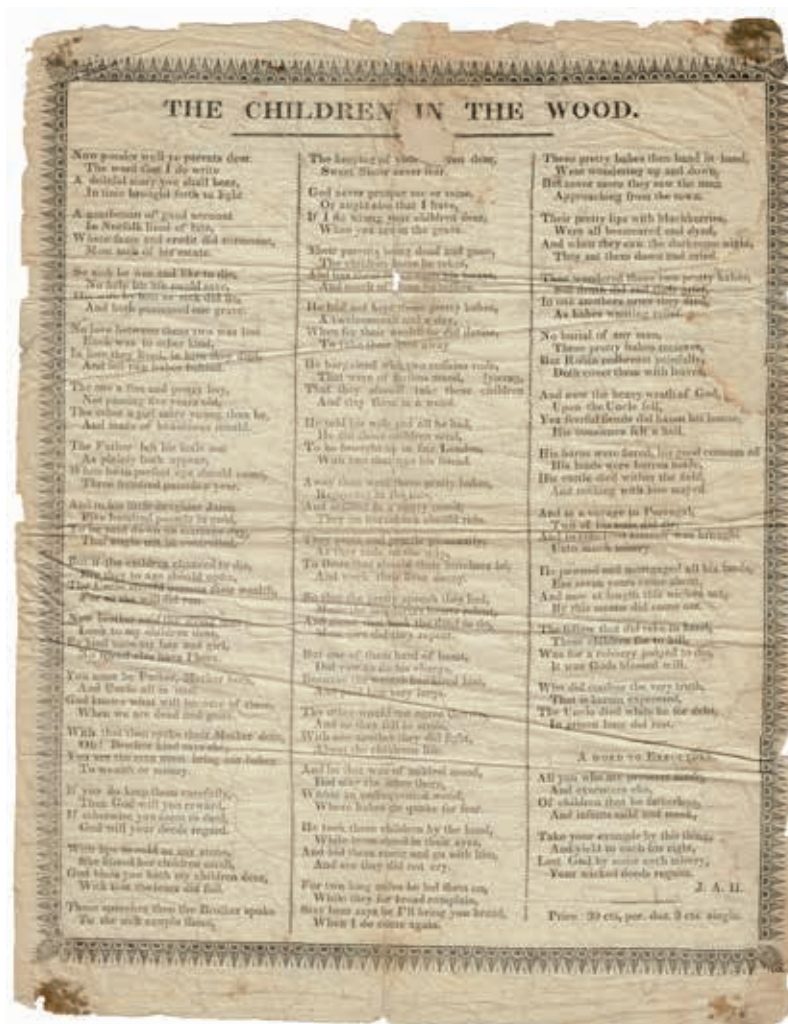 THE CHILDREN IN THE WOOD.
Now ponder well ye parents dear
The word that I do write
A doleful story you shall hear,
In time brought forth to light
A gentleman of good account
In Norfolk lived of late,
Whose fame and credit did surmount,
Most men of his estate.
So sick he was and like to die,
No help his life could save,
His wife by him as sick did lie,
And both possessed one grave.
No love between these two was lost
Each was to other kind,
In love they lived, in love they died,
And left two babes behind.
The one a fine and pretty boy,
Not passing five years old,
The other a girl more young than he,
And made of beauteous mould.
The Father left his little son
As plainly doth appear,
When he to perfect age should come,
Three hundred pounds a year.
And to his little daughter Jane
Five hundred pounds in gold,
To be paid down on
That might not be controll'd.
But if the children chanced to die,
Ere they to age should
The Uncle should possess their wealth,
For so the will did run.
Now brother said the dying man
Look to my children dear,
Be kind unto my boy and girl,
No friend else have I here.
You must be Father, Mother both,
And Uncle all in one
God knows what will become of them,
When we are dead and gone.
With that then spoke their Mother dear,
Oh! Brother kind says she,
You are the man must bring our babes
To wealth or misery.
If you do keep them carefully,
Then God will you reward,
If otherwise you seem to deal,
God will your deeds regard.
With lips as cold as any stone,
She kissed her children small,
God bless you both my children dear,
With that the tears did fall.
These speeches then the Brother spoke
To the sick couple there,
The keeping of your dear,
Sweet Sister never fear.
God never prosper me or mine,
Or aught else that I have,
If I do wrong your children dear,
When you are in the grave.
Their parents being dead and gone,
The children home he takes,
And
And much of them he makes.
He had not kept these pretty babes,
A twelvemonth and a day,
When for their wealth he did devise,
To take their lives away
He bargained with two ruffians rude,
That were of furious mood, [young,
That they should take these children
And slay them in a wood.
He told his wife and all he had,
He did those children send,
To be brought up in fair London,
With one that was his friend.
Away then went these pretty babes,
Rejoicing
And
They on horseback should ride.
They prate and prattle pleasantly,
As they rode on the way,
To those that should their butchers be,
And work their lives decay.
So that the pretty speech they had,
And
sore did they repent.
But one of them hard of heart,
Did vow to do his charge,
Because the wretch had hired him,
Had paid him very large.
The other would not agree
And so they fell to strife,
With one another they did fight,
About the childrens life.
And he that was of mildest mood,
Did slay the other there,
Within an unfrequented wood,
Where babes do quake for fear.
He took those children by the hand,
While tears stood in their eyes,
And bid them come and go with him,
And see they did not cry.
For two long miles he led them on,
While they for bread complain,
Stay here says he I'll bring you bread,
When I do come again.
These pretty babes then hand in hand,
Went wandering up and down,
But never more they saw the man
Approaching from the town.
Their pretty lips with blackberries,
Were all besmeared and dyed,
And when they saw the darksome night,
They sat them down and cried.
Thus wandered these two pretty babes,
Till death did end their grief,
In one anothers arms they died,
As babes wanting relief.
No burial of any man,
These pretty babes receives,
But Robin redbreast painfully,
Doth cover them with leaves.
And now the heavy wrath of God,
Upon the Uncle fell,
Yea fearful fiends did haunt his house,
His conscience felt a hell.
His barns were fired, his good consumed
His lands were barren made,
His cattle died within the field,
And nothing with him stayed.
And in a voyage to Portugal,
Two of his sons did die,
And to himself was brought
Unto much misery.
He pawned and mortgaged all his lands,
Ere seven years came about,
And now at length this wicked act,
By this means did come out.
The fellow that did take in hand,
These children for to kill,
Was for a robbery judged to die,
It was Gods blessed will.
Who did confess the very truth,
That is herein expressed,
The Uncle died while he for debt,
In prison long did rest.
A WORD TO EXECUTORS.
All you who are executors made,
And overseers eke,
Of children that be fatherless,
And infants mild and meek,
Take your example by this thing,
And yield to each his right,
Lest God by such misery,
Your wicked deeds requite.
J. A. H.
Price 20 cts, per. doz. 3 cts. single.